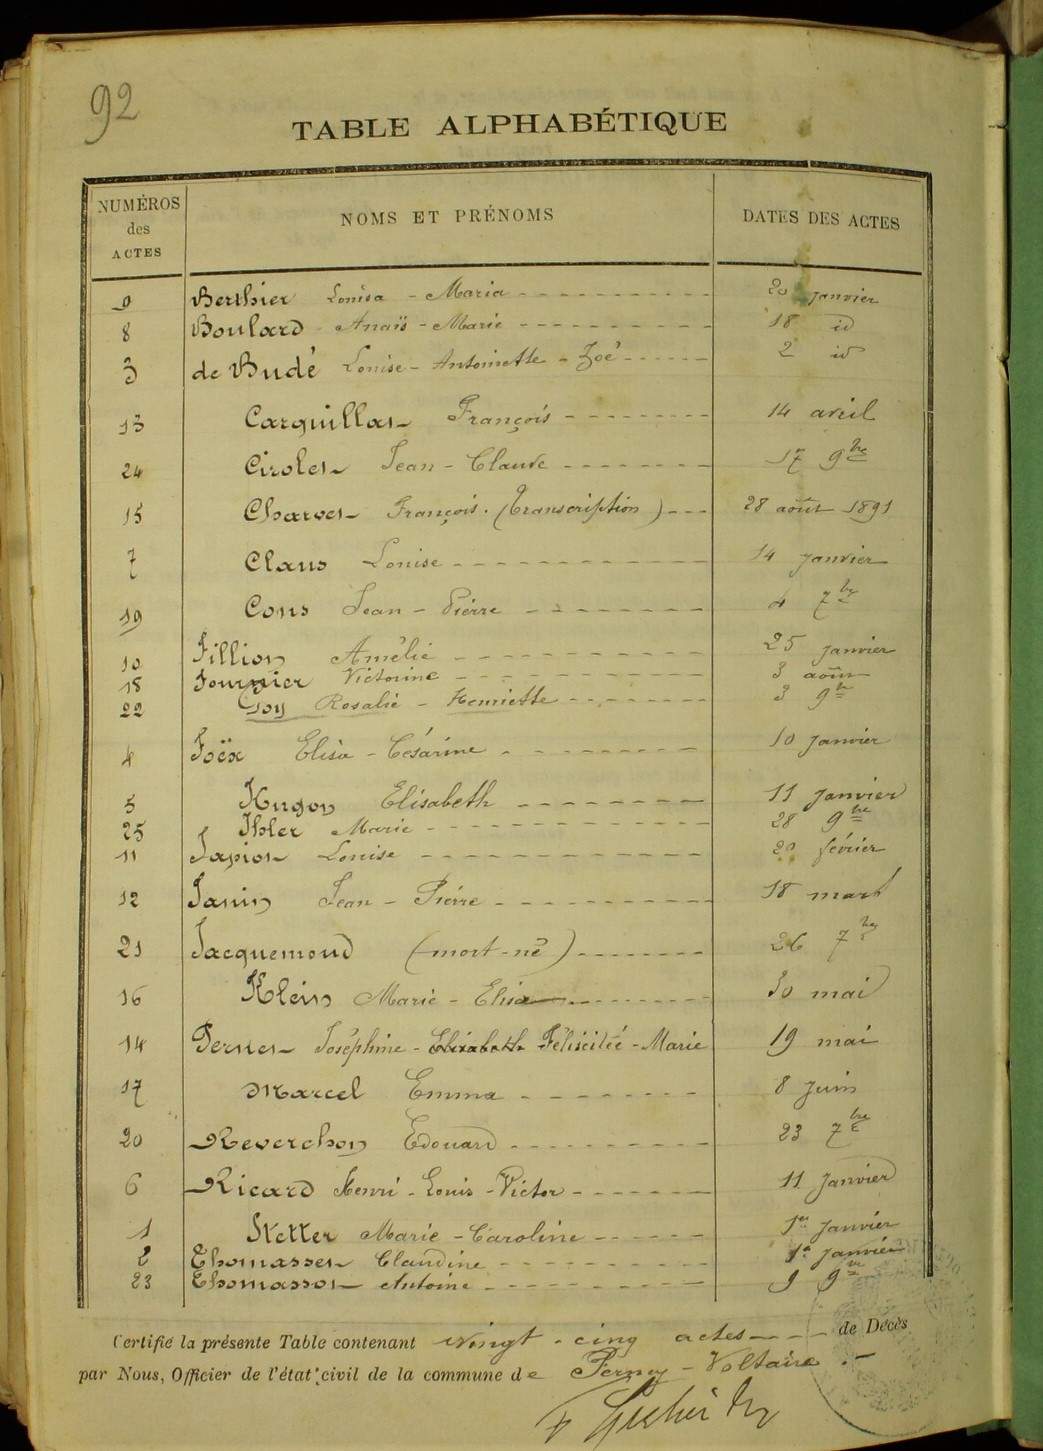 92
TABLE ALPHABÉTIQUE
NUMÉROS des ACTES NOMS ET PRÉNOMS DATES DES ACTES
9 Berthier Louisa - Maria 20 janvier
8 Boulard Anaïs - Marie 18 id
3 de Budé Louise - Antoinette - Zoé 2 id
13 Carquillat François 14 avril
24 Cirolet Jean - Claude 17 9bre
15 Charvet François. (Transcription) 28 août 1891
7 Claus Louise 14 janvier
19 Cons Jean - Pierre 4 7bre
10 Fillion Amélie 25 janvier
18 Fournier Victorine 3 août
22 Goy Rosalie - Henriette 3 9bre
4 Foëx Elisa - Césarine 10 janvier
5 Hugon Elisabeth 11 janvier
25 Ihler Marie 28 9bre
11 Japiot Louise 20 février
12 Janin Jean - Pierre 18 mars
21 Jacquemoud (mort-né) 26 7bre
16 Klein Marie - Elisa 30 mai
14 Pernet Joséphine - Elisabeth Félicitée - Marie 19 mai
17 Marcel Emma 8 juin
20 Reverchon Edouard 23 7bre
6 Ricard Henri - Louis - Victor 11 janvier
1 Stetter Marie - Caroline 1er janvier
2 Thomasset Claudine 1er janvier
23 Thomasson Antoine 9 9bre
Certifié la présente Table contenant vingt-cinq actes de Décès
par Nous, Officier de l'état civil de la commune de Ferney - Voltaire.